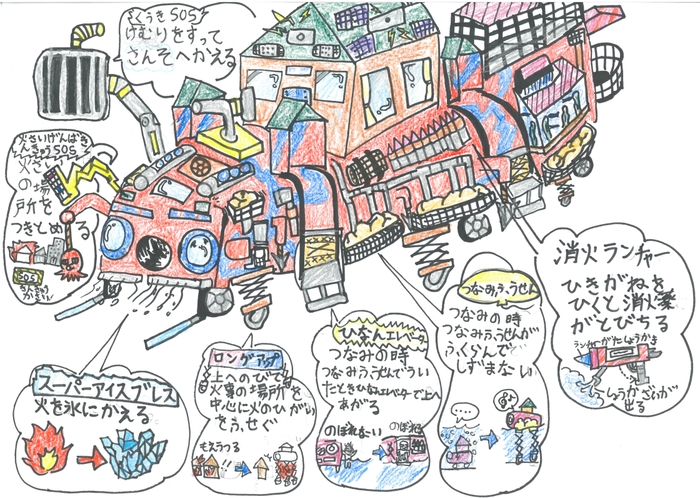 くうきSOS
けむりをすって
さんそへかえる
火さいげんばき
んきゅうSOS
火さい
の場
所を
つきとめ
る
SOS
消火ランチャー
ひきがねを
ひくと消火薬
がとびちる
しょうかざいが
出る
つなみふうせん
つなみの時
つなみふうせんが
ふくらんで
しずまない
ひなんエレベータ
つなみの時
つなみふうせんでうい
たときひなんエレベータで上へ
あがる
のぼれない
のぼれる
ロングアップ
上へのびて
火事の場所を
中心に火のひがり
をふせぐ
もえうつる
!!
スーパーアイスブレス
火を氷にかえる